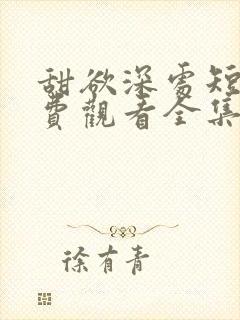 甜欲深處短
費觀看全集
徐有青